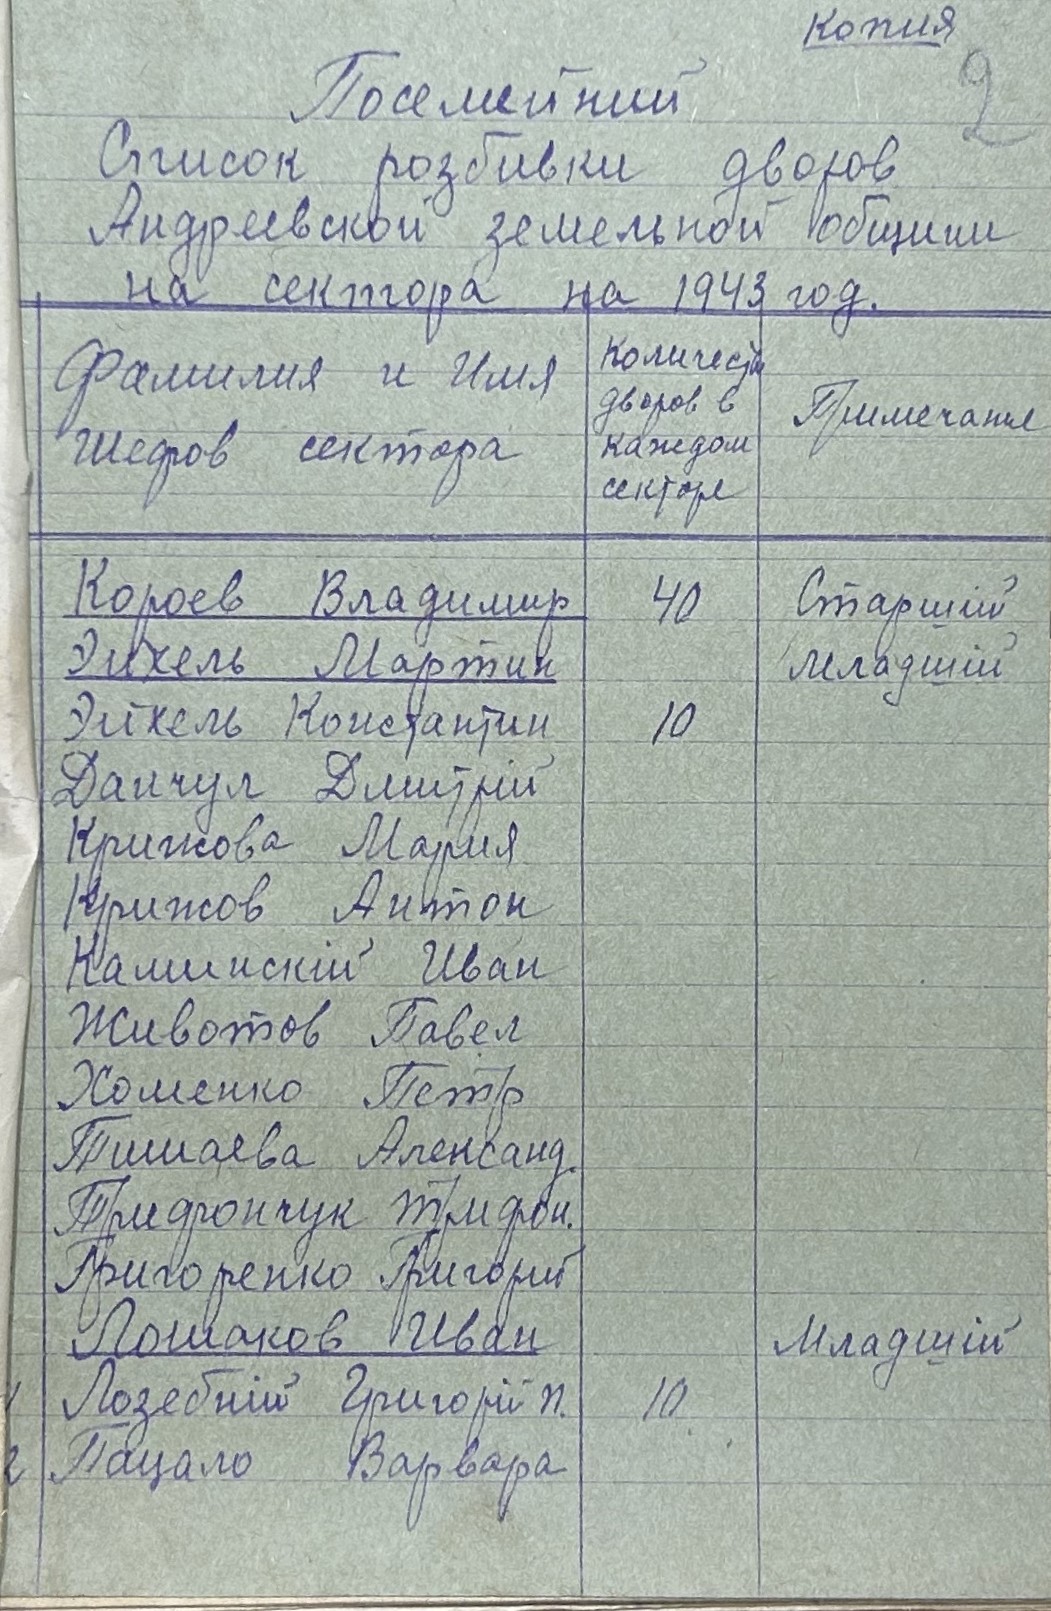 Копия
2
Посемейний
Список розбивки дворов
Андреевской земельной общини
на сектора на 1943 год.
Фамилия и Имя
Шефов сектора
Количеств
дворов в
каждом
секторе
Примечание
Короев Владимир 40 Старшій
Эйхель Мартин Младшій
Эйхель Константин 10
Данчул Дмитрій
Крижова Мария
Крижов Антон
Каминскій Иван
Животов Павел
Хоменко Петр
Тишаева Александ.
Трифончук Трифон.
Григоренко Григорий
Лошаков Иван Младшій
1 Лозебній Григорій П. 10
2 Пацало Варвара